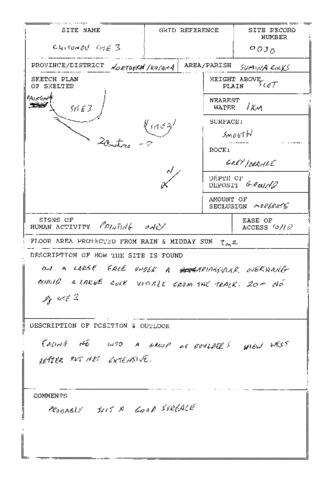 SITE NAME GRID REFERENCE SITE RECORD NUMBER
CHITOMBU SITE 3 0030
PROVINCE/DISTRICT NORTHERN/KASAMA AREA/PARISH SUMINA ROCKS
SKETCH PLAN OF SHELTER
SITE 3
SITE 2
20 metres
N
HEIGHT ABOVE PLAIN 5 FT
NEAREST WATER 1 KM
SURFACE:
SMOOTH
ROCK:
GREY/ORANGE
DEPTH OF DEPOSIT GROUND
AMOUNT OF SECLUSION MODERATE
SIGNS OF HUMAN ACTIVITY PAINTING ONLY
EASE OF ACCESS 10/10
FLOOR AREA PROTECTED FROM RAIN & MIDDAY SUN 7m2
DESCRIPTION OF HOW THE SITE IS FOUND
ON A LARGE FACE UNDER A TRIANGULAR OVERHANG
ROUND A LARGE ROCK VISIBLE FROM THE TRACK. 20m NE
of SITE 2
DESCRIPTION OF POSITION & OUTLOOK
FACING NE INTO A GROUP OF BOULDERS VIEW WEST
BETTER BUT NOT EXTENSIVE.
COMMENTS
PROBABLY JUST A GOOD SURFACE